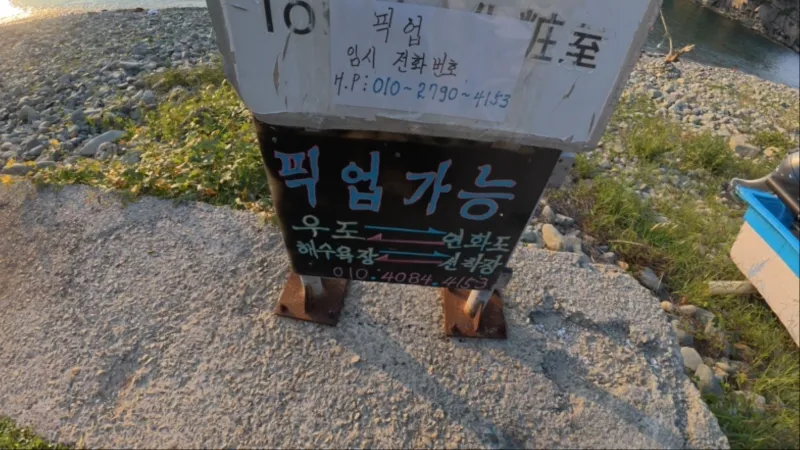 픽업
임시 전화번호
H.P: 010~2790~4153
化粧室
픽업가능
우도 연화도
해수욕장 선착장
010.4084.4153